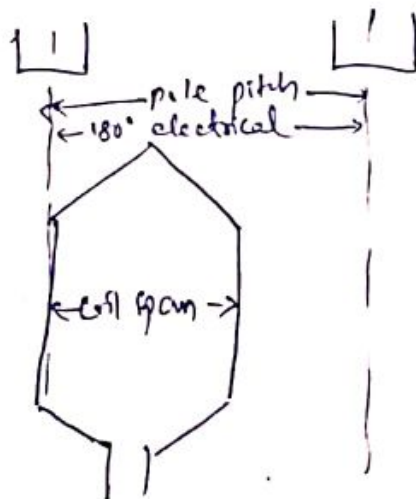 pole pitch
180° electrical
coil span